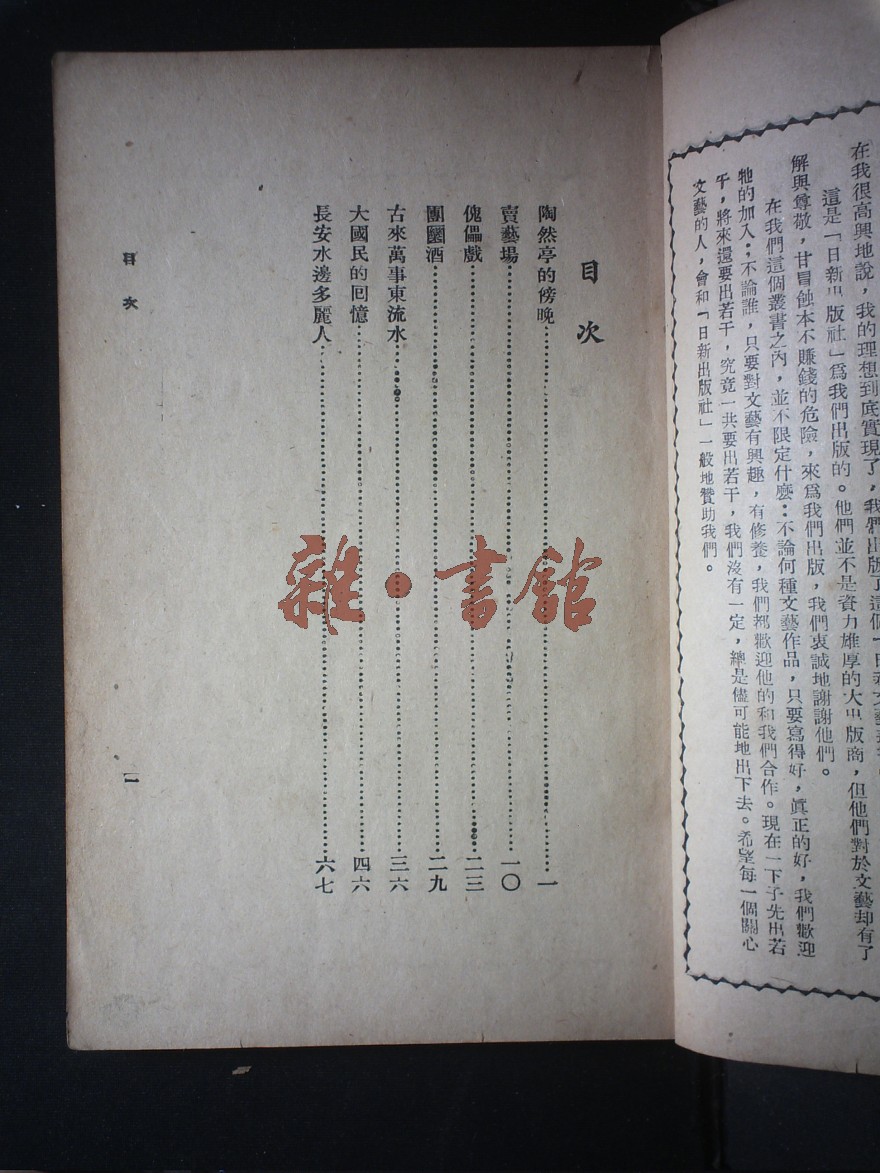 在我很高興地說，我的理想到底實現了，我們出版了這個「日新文藝
這是「日新出版社」爲我們出版的。他們並不是資力雄厚的大出版商，但他們對於文藝却有了
解與尊敬，甘冒蝕本不賺錢的危險，來爲我們出版，我們衷誠地謝謝他們。
在我們這個叢書之內，並不限定什麼：不論何種文藝作品，只要寫得好，眞正的好，我們歡迎
牠的加入：不論誰，只要對文藝有興趣，有修養，我們都歡迎他的和我們合作。現在一下子先出若
干，將來還要出若干，究竟一共要出若干，我們沒有一定，總是儘可能地出下去。希望每一個關心
文藝的人，會和「日新出版社」一般地贊助我們。
目次
陶然亭的傍晚 一
賣藝場 一〇
傀儡戲 二三
團圞酒 二九
古來萬事東流水 三六
大國民的回憶 四六
長安水邊多麗人 六七
目次 一
雜·書館